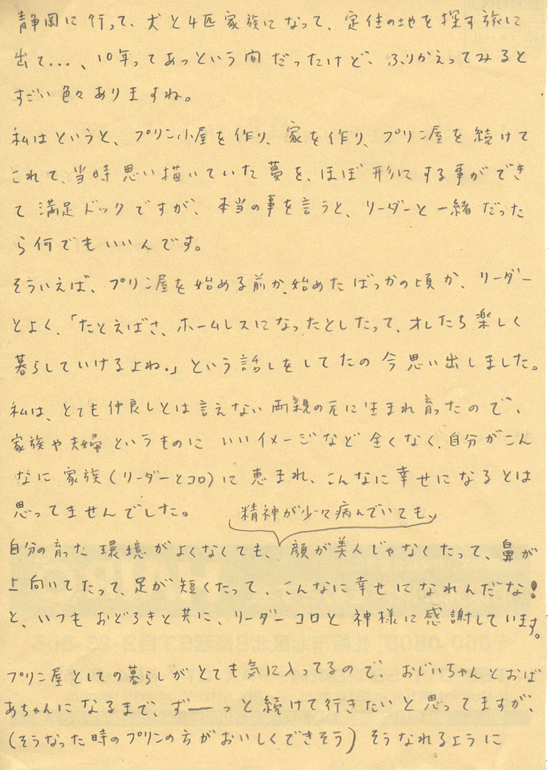 静岡に行って、犬と4匹家族になって、定住の地を探す旅に
出て…、10年ってあっという間だったけど、ふりかえってみると
すごい色々ありますね。
私はというと、プリン小屋を作り、家を作り、プリン屋を続けて
これて、当時思い描いていた夢を、ほぼ形にする事ができ
て満足ドックですが、本当の事を言うと、リーダーと一緒だった
ら何でもいいんです。
そういえば、プリン屋を始める前か、始めたばっかの頃か、リーダー
とよく、「たとえばさ、ホームレスになったとしたって、オレたち楽しく
暮らしていけるよね。」という話しをしてたの今思い出しました。
私は、とても仲良しとは言えない両親の元に生まれ育ったので、
家族や夫婦というものにいいイメージなど全くなく、自分がこん
なに家族(リーダーとコロ)に恵まれ、こんなに幸せになるとは
思ってませんでした。
精神が少々病んでいても、
自分の育った環境がよくなくても、顔が美人じゃなくたって、鼻が
上向いてたって、足が短くたって、こんなに幸せになれんだな!
と、いつもおどろきと共に、リーダーコロと神様に感謝しています。
プリン屋としての暮らしがとても気に入ってるので、おじいちゃんとおば
あちゃんになるまで、ずーっと続けて行きたいと思ってますが、
(そうなった時のプリンの方がおいしくできそう)そうなれるように